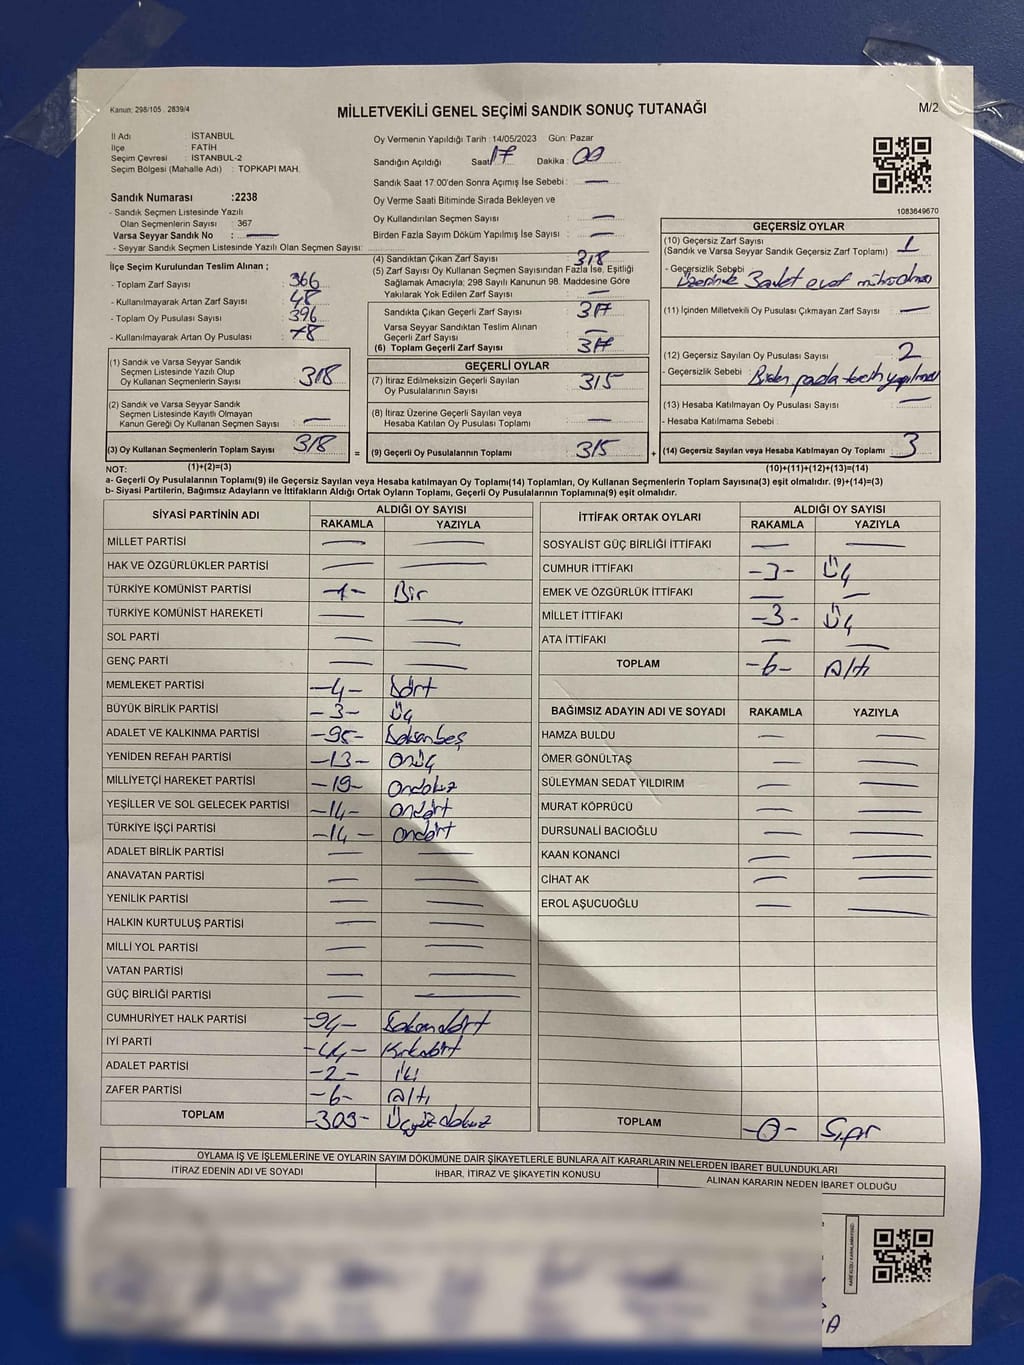 Kanun: 298/105 . 2839/4
MİLLETVEKİLİ GENEL SEÇİMİ SANDIK SONUÇ TUTANAĞI
M/2
İl Adı : İSTANBUL
İlçe : FATİH
Seçim Çevresi : İSTANBUL-2
Seçim Bölgesi (Mahalle Adı) : TOPKAPI MAH.
Sandık Numarası :2238
- Sandık Seçmen Listesinde Yazılı
Olan Seçmenlerin Sayısı : 367
Varsa Seyyar Sandık No : —
- Seyyar Sandık Seçmen Listesinde Yazılı Olan Seçmen Sayısı:
Oy Vermenin Yapıldığı Tarih : 14/05/2023 Gün: Pazar
Sandığın Açıldığı Saat: 17 Dakika : 00
Sandık Saat 17:00'den Sonra Açımış İse Sebebi : —
Oy Verme Saati Bitiminde Sırada Bekleyen ve
Oy Kullandırılan Seçmen Sayısı : —
Birden Fazla Sayım Döküm Yapılmış İse Sayısı : —
1083649670
İlçe Seçim Kurulundan Teslim Alınan ;
- Toplam Zarf Sayısı : 366
- Kullanılmayarak Artan Zarf Sayısı : 48
- Toplam Oy Pusulası Sayısı : 396
- Kullanılmayarak Artan Oy Pusulası : 78
(1) Sandık ve Varsa Seyyar Sandık
Seçmen Listesinde Yazılı Olup
Oy Kullanan Seçmenlerin Sayısı : 318
(2) Sandık ve Varsa Seyyar Sandık
Seçmen Listesinde Kayıtlı Olmayan
Kanun Gereği Oy Kullanan Seçmen Sayısı : —
(3) Oy Kullanan Seçmenlerin Toplam Sayısı : 318 =
(4) Sandıktan Çıkan Zarf Sayısı : 318
(5) Zarf Sayısı Oy Kullanan Seçmen Sayısından Fazla İse, Eşitliği
Sağlamak Amacıyla; 298 Sayılı Kanunun 98. Maddesine Göre
Yakılarak Yok Edilen Zarf Sayısı : —
Sandıkta Çıkan Geçerli Zarf Sayısı : 317
Varsa Seyyar Sandıktan Teslim Alınan
Geçerli Zarf Sayısı : —
(6) Toplam Geçerli Zarf Sayısı : 317
GEÇERLİ OYLAR
(7) İtiraz Edilmeksizin Geçerli Sayılan
Oy Pusulasının Sayısı : 315
(8) İtiraz Üzerine Geçerli Sayılan veya
Hesaba Katılan Oy Pusulası Toplamı : —
(9) Geçerli Oy Pusulalarının Toplamı : 315 +
GEÇERSİZ OYLAR
(10) Geçersiz Zarf Sayısı
(Sandık ve Varsa Seyyar Sandık Geçersiz Zarf Toplamı) : 1
- Geçersizlik Sebebi : Üzerinde 3 adet evet mührü olması
(11) İçinden Milletvekili Oy Pusulası Çıkmayan Zarf Sayısı : —
(12) Geçersiz Sayılan Oy Pusulası Sayısı : 2
- Geçersizlik Sebebi : Birden fazla tercih yapılması
(13) Hesaba Katılmayan Oy Pusulası Sayısı : —
- Hesaba Katılmama Sebebi :
(14) Geçersiz Sayılan veya Hesaba Katılmayan Oy Toplamı : 3
NOT: (1)+(2)=(3) (10)+(11)+(12)+(13)=(14)
a- Geçerli Oy Pusulalarının Toplamı(9) ile Geçersiz Sayılan veya Hesaba katılmayan Oy Toplamı(14) Toplamları, Oy Kullanan Seçmenlerin Toplam Sayısına(3) eşit olmalıdır. (9)+(14)=(3)
b- Siyasi Partilerin, Bağımsız Adayların ve İttifakların Aldığı Ortak Oyların Toplamı, Geçerli Oy Pusulalarının Toplamına(9) eşit olmalıdır.
SİYASİ PARTİNİN ADI ALDIĞI OY SAYISI
RAKAMLA YAZIYLA
MİLLET PARTİSİ — —
HAK VE ÖZGÜRLÜKLER PARTİSİ — —
TÜRKİYE KOMÜNİST PARTİSİ -1- Bir
TÜRKİYE KOMÜNİST HAREKETİ — —
SOL PARTİ — —
GENÇ PARTİ — —
MEMLEKET PARTİSİ -4- Dört
BÜYÜK BİRLİK PARTİSİ -3- Üç
ADALET VE KALKINMA PARTİSİ -95- Doksanbeş
YENİDEN REFAH PARTİSİ -13- Onüç
MİLLİYETÇİ HAREKET PARTİSİ -19- Ondokuz
YEŞİLLER VE SOL GELECEK PARTİSİ -14- Ondört
TÜRKİYE İŞÇİ PARTİSİ -14- Ondört
ADALET BİRLİK PARTİSİ — —
ANAVATAN PARTİSİ — —
YENİLİK PARTİSİ — —
HALKIN KURTULUŞ PARTİSİ — —
MİLLİ YOL PARTİSİ — —
VATAN PARTİSİ — —
GÜÇ BİRLİĞİ PARTİSİ — —
CUMHURİYET HALK PARTİSİ -94- Doksandört
İYİ PARTİ -44- Kırkdört
ADALET PARTİSİ -2- İki
ZAFER PARTİSİ -6- Altı
TOPLAM -309- Üçyüzdokuz
İTTİFAK ORTAK OYLARI ALDIĞI OY SAYISI
RAKAMLA YAZIYLA
SOSYALİST GÜÇ BİRLİĞİ İTTİFAKI — —
CUMHUR İTTİFAKI -3- Üç
EMEK VE ÖZGÜRLÜK İTTİFAKI — —
MİLLET İTTİFAKI -3- Üç
ATA İTTİFAKI — —
TOPLAM -6- Altı
BAĞIMSIZ ADAYIN ADI VE SOYADI RAKAMLA YAZIYLA
HAMZA BULDU — —
ÖMER GÖNÜLTAŞ — —
SÜLEYMAN SEDAT YILDIRIM — —
MURAT KÖPRÜCÜ — —
DURSUNALİ BACIOĞLU — —
KAAN KONANCİ — —
CİHAT AK — —
EROL AŞUCUOĞLU — —
TOPLAM -0- Sıfır
OYLAMA İŞ VE İŞLEMLERİNE VE OYLARIN SAYIM DÖKÜMÜNE DAİR ŞİKAYETLERLE BUNLARA AİT KARARLARIN NELERDEN İBARET BULUNDUKLARI
İTİRAZ EDENİN ADI VE SOYADI İHBAR, İTİRAZ VE ŞİKAYETİN KONUSU ALINAN KARARIN NEDEN İBARET OLDUĞU